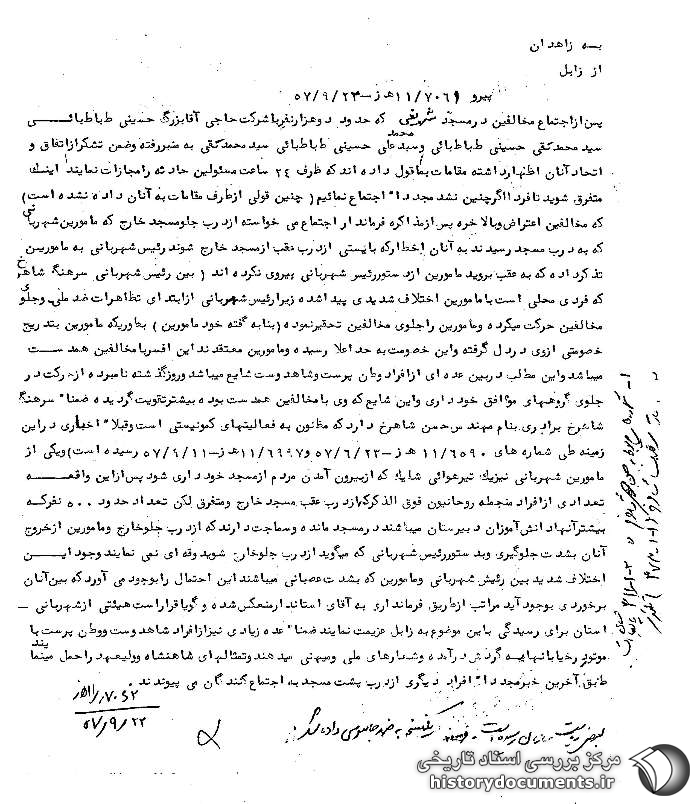 به زاهدان
از زابل
پیرو ۱۱/۷۰۶۱ هـ ز ـ ۵۷/۹/۲۳
پس از اجتماع مخالفین در مسجد شریفی که حدود دو هزار نفر با شرکت حاجی آقا بزرگ حسینی طباطبائی
سید محمد تقی حسینی طباطبائی و سید علی محمد حسینی طباطبائی سید محمد تقی به منبر رفته وضمن تشکر از اتفاق و
اتحاد آنان اظهار داشته مقامات بما قول داده اند که ظرف ۲۴ ساعت مسئولین حادثه را مجازات نمایند اینک
متفرق شوید تا فردا اگر چنین نشد مجددا" اجتماع نمائیم ( چنین قولی از طرف مقامات به آنان داده نشده است )
که مخالفین اعتراض وبالاخره پس از مذاکره فرماندار اجتماع می خواسته از درب جلو مسجد خارج که مامورین شهربانی
که به درب مسجد رسیدند به آنان اخطار که بایستی از درب عقب از مسجد خارج شوند رئیس شهربانی به مامورین
تذکر داده که به عقب بروید مامورین از دستور رئیس شهربانی پیروی نکرده اند ( بین رئیس شهربانی سرهنگ شاهرخ
که فردی محلی است با مامورین اختلاف شدیدی پیدا شده زیرا رئیس شهربانی از ابتدای تظاهرات ضد ملی وجلوی
مخالفین حرکت میکرده ومامورین را جلوی مخالفین تحقیر نموده ( بنا به گفته خود مامورین ) بطوریکه مامورین بتدریج
خصومتی از وی در دل گرفته واین خصومت به حد اعلا رسیده ومامورین معتقدند این افسر با مخالفین همدست
میباشد واین مطلب در بین عده ای از افراد وطن پرست وشاهدوست شایع میباشد وروز گذشته نامبرده از حرکت در
جلوی گروههای موافق خودداری واین شایع که وی با مخالفین همدست بوده بیشتر تقویت گردیده ضمنا" سرهنگ
شاهرخ برادری بنام مهندس حسن شاهرخ دارد که مظنون به فعالیتهای کمونیستی است وقبلا" اخباری در این
زمینه طی شماره های ۱۱/۶۵۹۰ هـ ز ـ ۵۷/۶/۲۲ و ۱۱/۶۹۹۷ هـ ز ـ ۵۷/۹/۱۱ رسیده است ) ویکی از
مامورین شهربانی نیز یک تیر هوائی شلیک که از بیرون آمدن مردم از مسجد خودداری شود پس از این واقعه
تعدادی از افراد منجمله روحانیون فوق الذکر که از درب عقب مسجد خارج ومتفرق لکن تعداد حدود ۵۰۰ نفر که
بیشتر آنها دانش آموزان دبیرستان میباشند در مسجد مانده وسماجت دارند که از درب جلو خارج ومامورین از خروج
آنان بشدت جلوگیری وبدستور رئیس شهربانی که میگوید از درب جلو خارج شوید وقعه ای نمی نمایند وجود این
اختلاف شدید بین رئیس شهربانی ومامورین که بشدت عصبانی میباشند این احتمال را بوجود می آورد که بین آنان
برخوردی بوجود آید مراتب از طریق فرمانداری به آقای استاندار منعکس شده و گویا قرار است هیئتی از شهربانی ـ
استان برای رسیدگی باین موضوع به زابل عزیمت نمایند ضمنا" عده زیادی نیز از افراد شاهدوست ووطن پرست با
موتور در خیابانها به گردش در آمده وشعارهای ملی ومیهنی میدهند وتمثالهای شاهنشاه وولیعهد را حمل مینمایند
طبق آخرین خبر مجددا" افراد دیگری از درب پشت مسجد به اجتماع کنندگان می پیوندند
۷۰۵۲
۵۷/۹/۲۳
مرکز بررسی اسناد تاریخی
historydocuments.ir